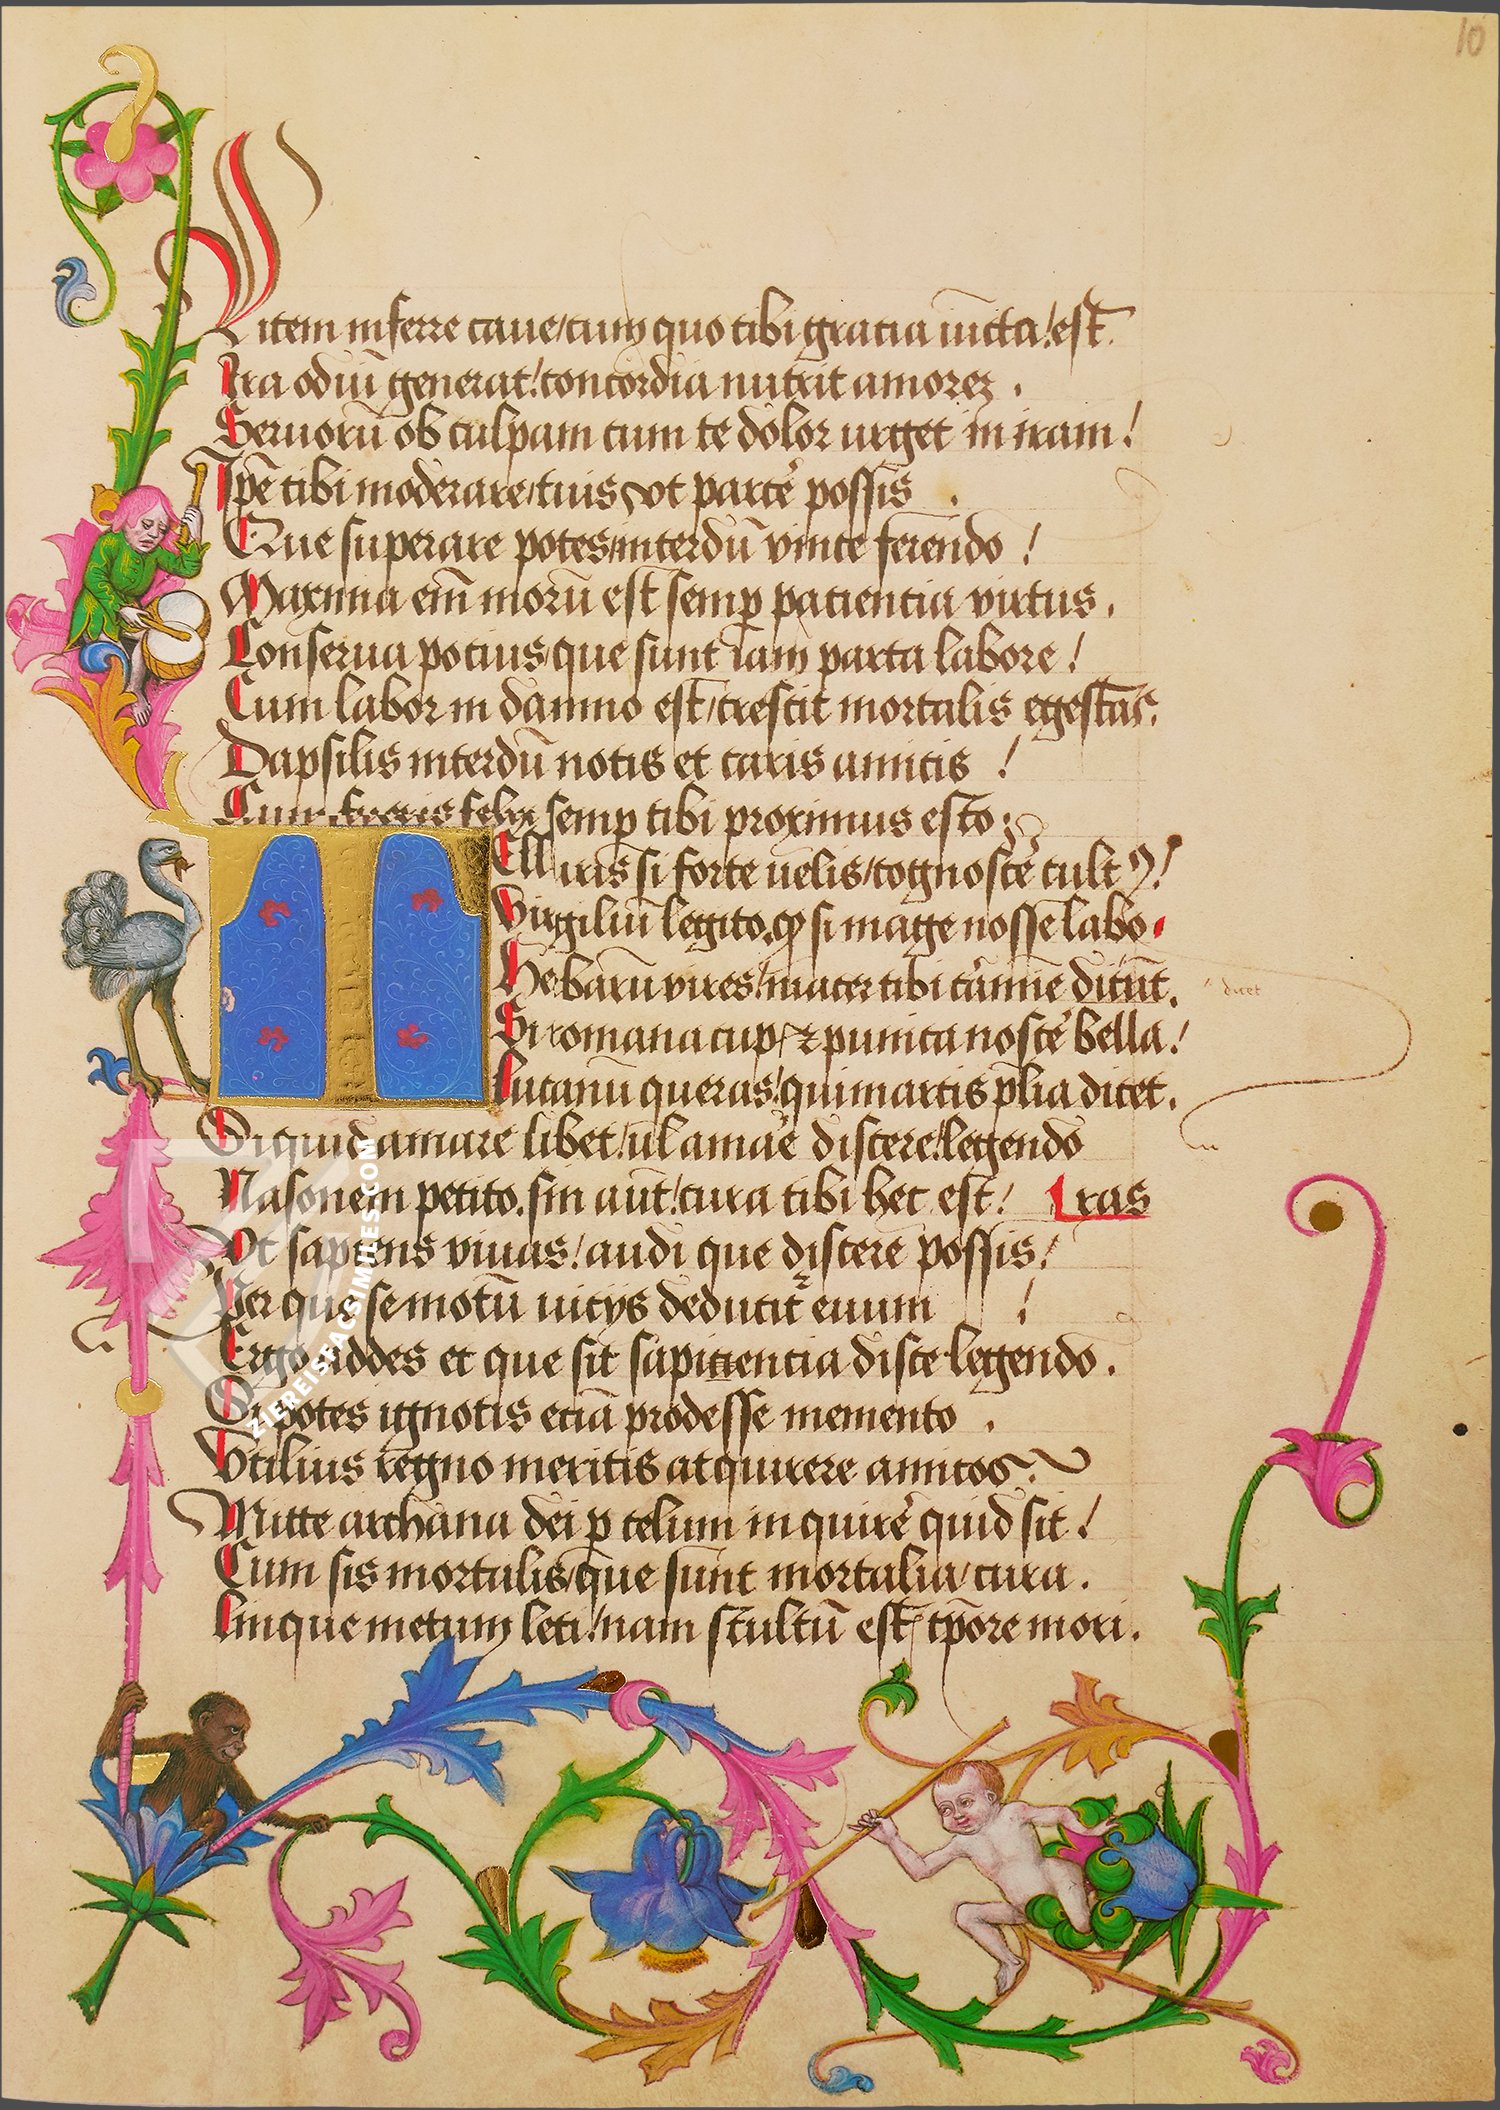 10
Litem inferre caue/cum quo tibi gratia iūcta!est.
Ira odiū generat!concordia nutrit amorez .
Seruorū ob culpam cum te dolor urget in iram!
Ipē tibi moderare/tuis vt parcē possis .
Que superare potes/interdū vince ferendo !
Maxima em̄ morū est semp patientia virtus.
Conserua potius/que sunt iam parta labore !
Cum labor in damno est/crescit mortalis egestas.
Dapsilis interdū notis et caris amicis !
Cum fueris felix semp tibi proximus esto;
uris si forte uelis/cognoscē cult
Virgiliū legito. si mage nosse labo
Herbarū vires/macer tibi carmīe dicūt.
dicet
Si romana cup/ et punica noscē bella.!
lucanū queras!qui martis p̄lia dicet.
Si quid amare libet/ul amā'e discere!legendo
Nasonem petito.sin aūt!cura tibi hec est! Lras
Ot sapiens viuas!audi que discere possis!
Per que semotū uicijs deducit euum !
Ergo addes et que sit sapitientia disce legendo.
Si potes ignotis eciā prodesse memento .
Vtilius regno meritis atquirere amicos.
Mitte archana dei p celum inquirē quid sit!
Cum sis mortalis/que sunt mortalia/cura.
linque metum leti!nam stultū est tp̄ore mori.
ZIEREISFACSIMILES.COM